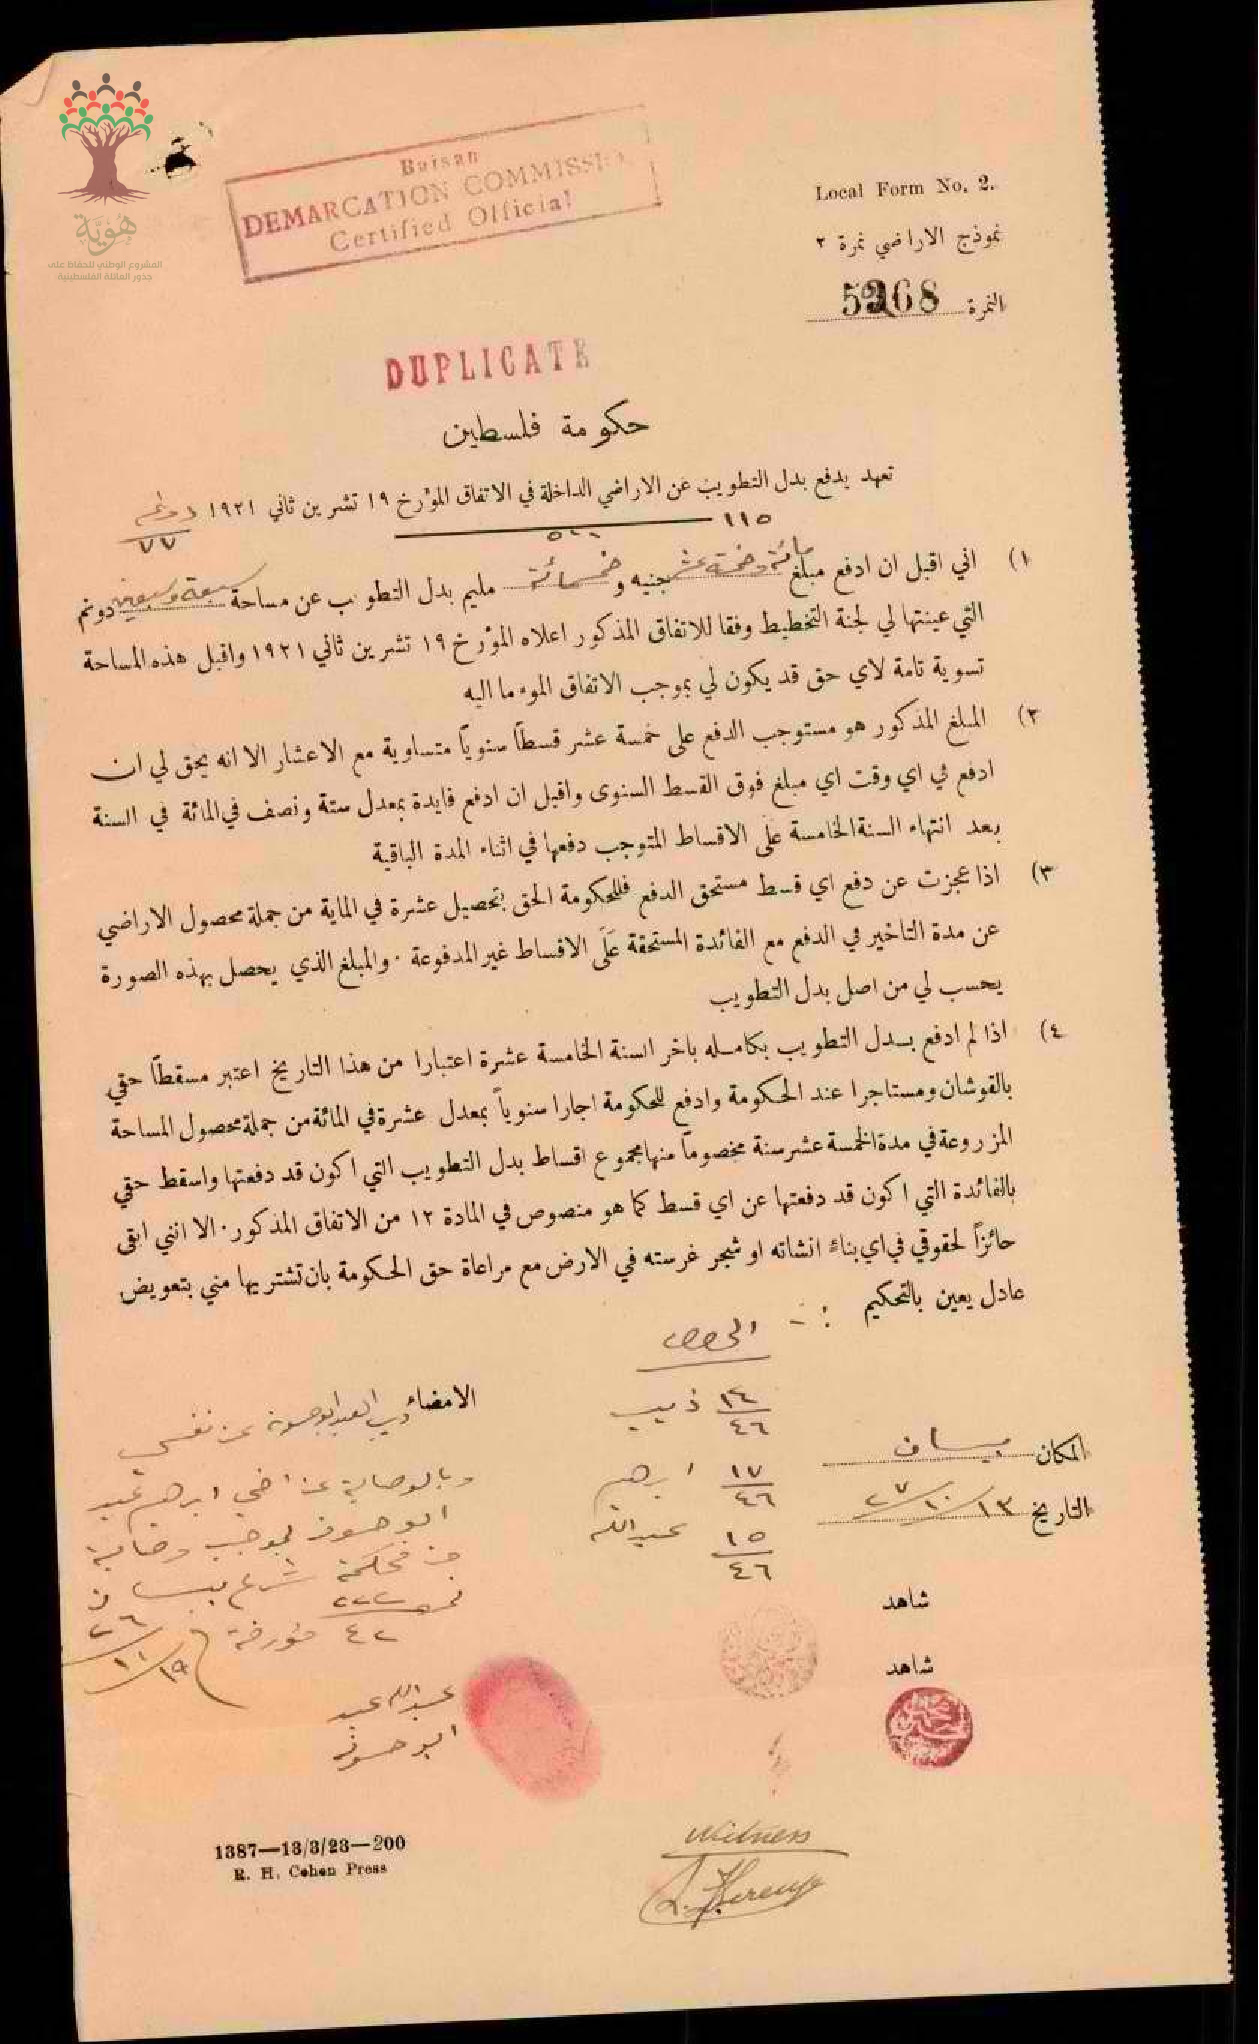 هوية
المشروع الوطني للحفاظ على
جذور العائلة الفلسطينية
Baisan
DEMARCATION COMMISSI
Certified Official
Local Form No. 2.
نموذج الاراضي نمرة ٢
النمرة 5268
DUPLICATE
حكومة فلسطين
تعهد بدفع بدل التطويب عن الاراضي الداخلة في الاتفاق المؤرخ ١٩ تشرين ثاني ١٩٢١ دونم
٧٧
١١٥
٥٠٠
١) اني اقبل ان ادفع مبلغ مائة وخمسة عشر جنيه و خمسمائة مليم بدل التطويب عن مساحة سبعة وسبعين دونم
التي عينتها لي لجنة التخطيط وفقا للاتفاق المذكور اعلاه المؤرخ ١٩ تشرين ثاني ١٩٢١ واقبل هذه المساحة
تسوية تامة لاي حق قد يكون لي بموجب الاتفاق الموء ما اليه
٢) المبلغ المذكور هو مستوجب الدفع على خمسة عشر قسطاً سنوياً متساوية مع الاعشار الا انه يحق لي ان
ادفع في اي وقت اي مبلغ فوق القسط السنوى واقبل ان ادفع فايدة بمعدل ستة ونصف في المائة في السنة
بعد انتهاء السنة الخامسة على الاقساط المتوجب دفعها في اثناء المدة الباقية
٣) اذا عجزت عن دفع اي قسط مستحق الدفع فللحكومة الحق بتحصيل عشرة في الماية من جملة محصول الاراضي
عن مدة التاخير في الدفع مع الفائدة المستحقة على الاقساط غير المدفوعة . والمبلغ الذي يحصل بهذه الصورة
يحسب لي من اصل بدل التطويب
٤) اذا لم ادفع بدل التطويب بكامله باخر السنة الخامسة عشرة اعتبارا من هذا التاريخ اعتبر مسقطاً حقي
بالقوشان ومستاجرا عند الحكومة وادفع للحكومة اجارا سنوياً بمعدل عشرة في المائة من جملة محصول المساحة
المزروعة في مدة الخمسة عشر سنة مخصوماً منها مجموع اقساط بدل التطويب التي اكون قد دفعتها واسقط حقي
بالفائدة التي اكون قد دفعتها عن اي قسط كما هو منصوص في المادة ١٢ من الاتفاق المذكور . الا انني ابقى
حائزاً لحقوقي في اي بناءً انشاته او شجر غرسته في الارض مع مراعاة حق الحكومة بان تشتريها مني بتعويض
عادل يعين بالتحكيم :-
الحصص
١٤
٤٦ ذيب
١٧
٤٦ ابرهيم
١٥
٤٦ عبد الله
الامضاء ذيب العبد ابو حسونة عن نفسي
وبالوصاية عن اخي ابرهيم عبد
ابو حسونه بموجب وصاية
من محكمة شرع بيسان
نمرو ٢٢٢
٤٢ مؤرخة ١٩/١١/٢٦
عبدالله عبد
ابو حسونه
المكان بيسان
التاريخ ١٣/١٠/٢٧
شاهد
شاهد
Witness
1387—13/3/23—200
R. H. Cohen Press